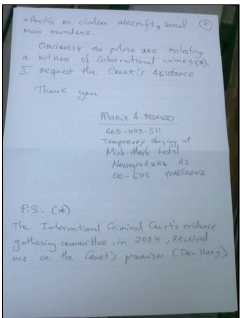 attacks on civilian aircraft, send (2)
men murders.
Obviously the police are protecting
a witness of international crimes (*).
I request the Court's Assistance
Thank you
Mario A.
Temporary staying at
hotel
Nowogrodzka 42
00-695 WARSZAWA
P.S. (*)
The International Criminal Court's evidence
gathering committee, in 2004, received
me on the Court's premises (Den Haag).